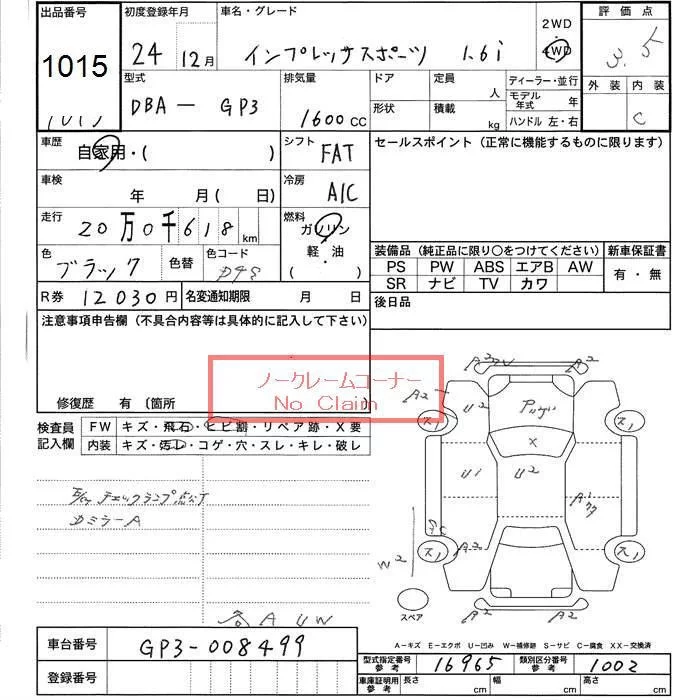 出品番号 初度登録年月 車名・グレード 2WD 評価点
1015 24 12月 インプレッサスポーツ 1.6i 4WD 3.5
型式 排気量 ドア 定員 人 ディーラー・並行 外装 内装
DBA — GP3 1600 CC 形状 積載 kg モデル年式 年 C
ハンドル 左・右
車歴 自家用・( ) シフト FAT セールスポイント(正常に機能するものに限ります)
車検 年 月(日) 冷房 A/C
走行 20万0千618 km 燃料 ガソリン
軽・油
( )
色 ブラック 色替 色コード D4S 装備品(純正品に限り○をつけてください) 新車保証書
PS PW ABS エアB AW 有・無
SR ナビ TV カワ
R券 12030円 名変通知期限 月 日 後日品
注意事項申告欄(不具合内容等は具体的に記入して下さい)
ノークレームコーナー
No Claim
修復歴 有〔箇所 〕
検査員記入欄 FW キズ・飛石・ヒビ割・リペア跡・X要
内装 キズ・汚レ・コゲ・穴・スレ・キレ・破レ
チェックランプ点灯
カミラーA
A UW
A2 A2
A2 U2
ス1 ス1
X
Ui U2
W2
ス1 A2 ス1
スペア A2 A2
A-キズ E-エクボ U-凹み W-補修跡 S-サビ C-腐食 XX-交換済
車台番号 GP3-008499
型式指定番号参考 16965 類別区分番号参考 1002
登録番号
車庫証明用参考 長さ cm 幅 cm 高さ cm